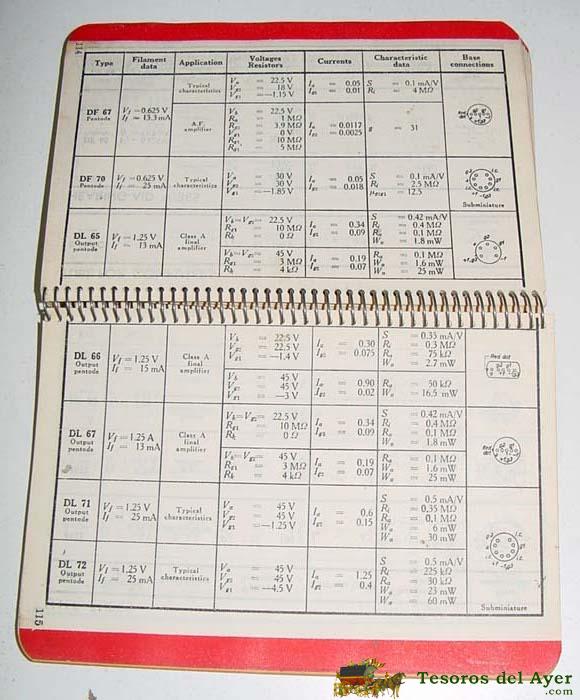 114
Type Filament data Application Voltages Resistors Currents Characteristic data Base connections
DF 67 Pentode
Vf = 0.625 V
If = 13.3 mA
Typical characteristics
Va = 22.5 V
Vg2 = 18 V
Vg1 = -1.15 V
Ia = 0.05
Ig2 = 0.01
S = 0.1 mA/V
Ri = 4 MΩ
A.F. amplifier
Vb = 22.5 V
Ra = 1 MΩ
Rg2 = 3.9 MΩ
= 0 V
= 10 MΩ
= 5 MΩ
Ia = 0.0117
Ig2 = 0.0025
g = 31
Red dot
DF 70 Pentode
Vf = 0.625 V
If = 25 mA
Typical characteristics
Va = 30 V
Vg2 = 30 V
Vg1 = -1.85 V
Ia = 0.05
Ig2 = 0.018
S = 0.1 mA/V
Ri = 2.5 MΩ
μg2g1 = 12.5
Subminiature
DL 65 Output pentode
Vf = 1.25 V
If = 13 mA
Class A final amplifier
Vb = Vg2 = 22.5 V
Rg1 = 10 MΩ
Rk = 0 Ω
Ia = 0.34
Ig2 = 0.09
S = 0.42 mA/V
Ri = 0.4 MΩ
Ra = 0.1 MΩ
Wo = 1.8 mW
Vb = Vg2 = 45 V
Rg1 = 3 MΩ
Rk = 4 kΩ
Ia = 0.19
Ig2 = 0.07
Ra = 0.1 MΩ
Wo = 1.6 mW
Wa = 25 mW
DL 66 Output pentode
Vf = 1.25 V
If = 15 mA
Class A final amplifier
Va = 22.5 V
Vg2 = 22.5 V
Vg1 = -1.4 V
Ia = 0.30
Ig2 = 0.075
S = 0.35 mA/V
Ri = 0.3 MΩ
Ra = 75 kΩ
Wo = 2.7 mW
Red dot
Va = 45 V
Vg2 = 45 V
Vg1 = -3 V
Ia = 0.90
Ig2 = 0.02
Ra = 50 kΩ
Wo = 16.5 mW
DL 67 Output pentode
Vf = 1.25 A
If = 13 mA
Class A final amplifier
Vb = Vg2 = 22.5 V
Rg1 = 10 MΩ
Rk = 0 Ω
Ia = 0.34
Ig2 = 0.09
S = 0.42 mA/V
Ri = 0.4 MΩ
Ra = 0.1 MΩ
Wo = 1.8 mW
Red dot
Vb = Vg2 = 45 V
Rg1 = 3 MΩ
Rk = 4 kΩ
Ia = 0.19
Ig2 = 0.07
Ra = 0.1 MΩ
Wo = 1.6 mW
Wa = 25 mW
DL 71 Output pentode
Vf = 1.25 V
If = 25 mA
Typical characteristics
Va = 45 V
Vg2 = 45 V
Vg1 = -1.25 V
Ia = 0.6
Ig2 = 0.15
S = 0.5 mA/V
Ri = 0.35 MΩ
Ra = 0.1 MΩ
Wo = 6 mW
Wa = 30 mW
DL 72 Output pentode
Vf = 1.25 V
If = 25 mA
Typical characteristics
Va = 45 V
Vg2 = 45 V
Vg1 = -4.5 V
Ia = 1.25
Ig2 = 0.4
S = 0.5 mA/V
Ri = 225 kΩ
Ra = 30 kΩ
Wo = 23 mW
Wa = 60 mW
Subminiature
115
Tesoros del Ayer
.com